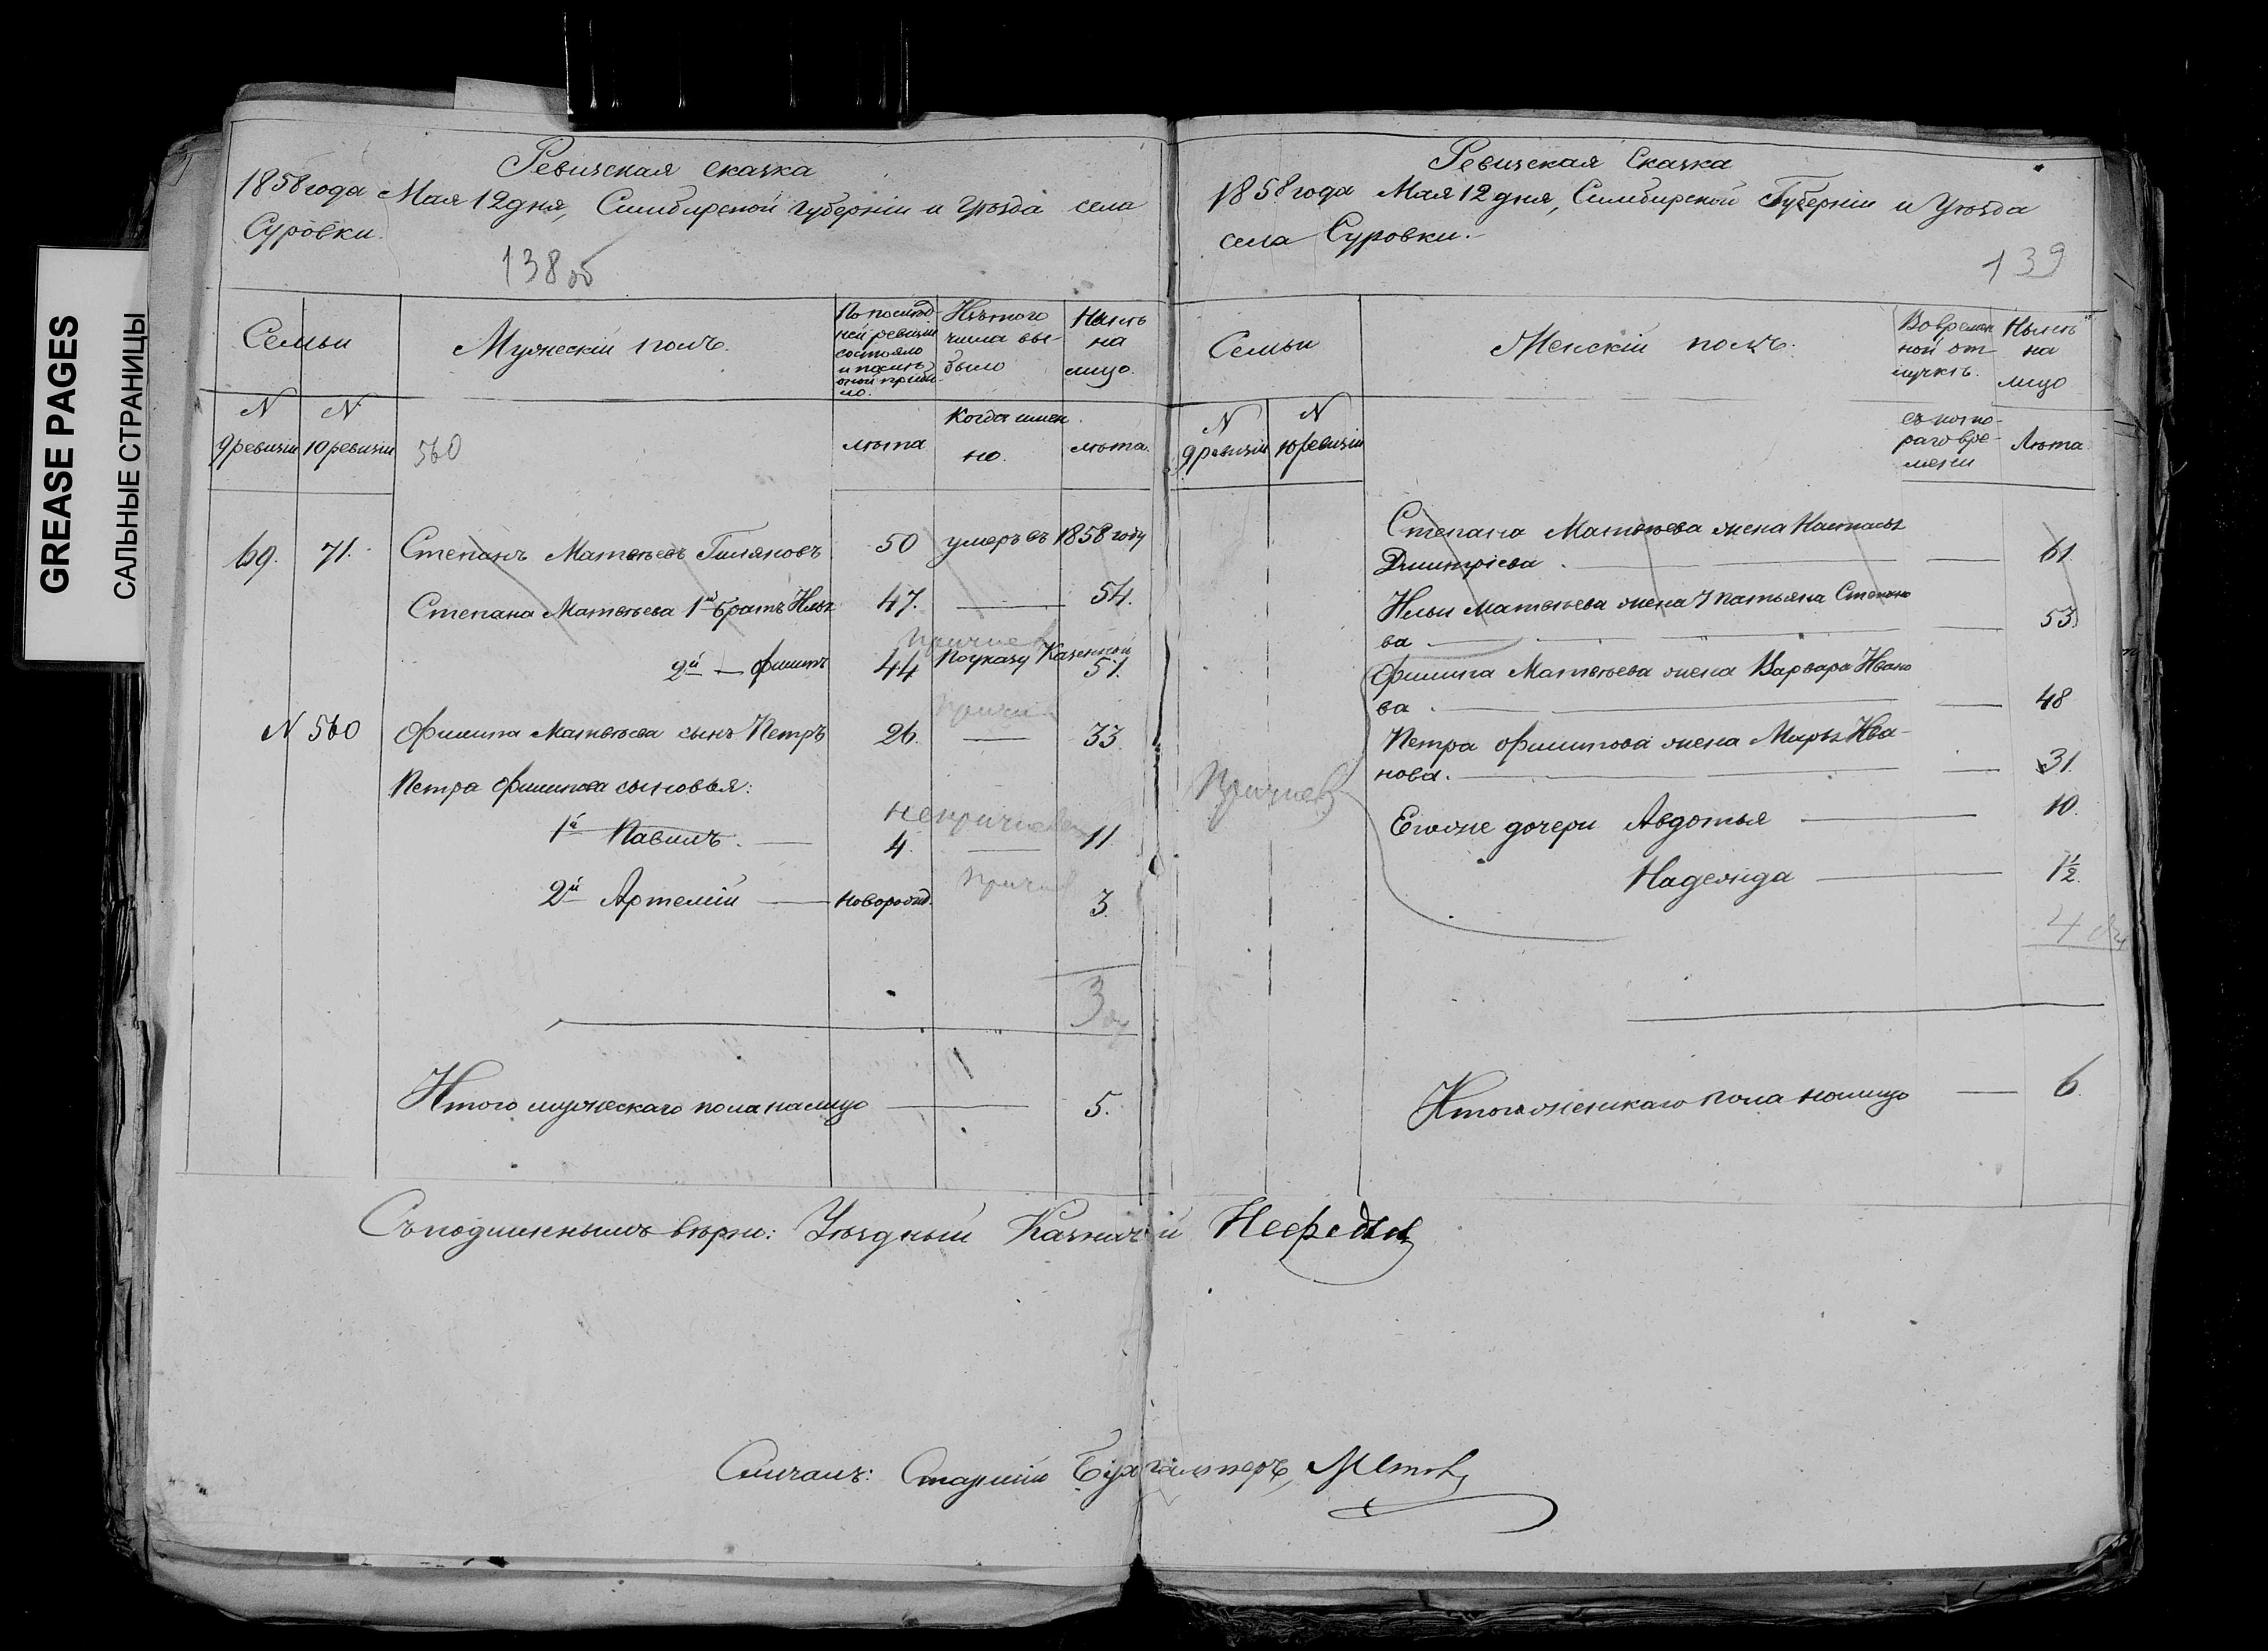 GREASE PAGES
САЛЬНЫЕ СТРАНИЦЫ
Ревизская сказка
1858 года Мая 12 дня, Симбирской губерніи и Уѣзда села
Суровки.
138 об
Семьи
Мужескій полъ.
По послѣд-
ней ревизіи
состояло
и послѣ
оной прибы-
ло.
Изъ того
числа вы-
было
Нынѣ
на
лицо.
N
9 ревизіи
N
10 ревизіи
560
лѣта
Когда имен
но.
лѣта.
69. 71. Степанъ Матвѣевъ Гиляновъ 50 умеръ въ 1858 году
Степана Матвѣева 1й братъ Илья 47. — 54.
Причисл
2й — Филипъ 44 По указу Казенной 51.
N 560 Филипа Матвѣева сынъ Петръ 26. — 33.
Петра Филипова сыновья:
1й Павилъ. — 4. — 11.
2й Артемій — новорожд. 3.
3
Итого мужескаго пола налицо — 5.
Ревизская Сказка
1858 года Мая 12 дня, Симбирской Губерніи и Уѣзда
села Суровки.
139
Семьи
Женскій полъ.
Во времен
ной от
лучкѣ.
Нынѣ
на
лицо
N
9 ревизіи
N
10 ревизіи
съ кото-
раго вре-
мени
Лѣта
Степана Матвѣева жена Настасья
Дмитріева. — 61
Ильи Матвѣева жена Татьяна Степано
ва — 53
Филипа Матвѣева жена Варвара Ивано
ва. — 48
Петра Филипова жена Марья Ива-
нова. — 31.
Его же дочери Авдотья — 10.
Надежда — 1½.
4
Итого женскаго пола налицо — 6.
Съ подлиннымъ вѣрно: Уѣздный Казначей Нефедьев
Сличалъ: Старшій Бухгалтеръ,